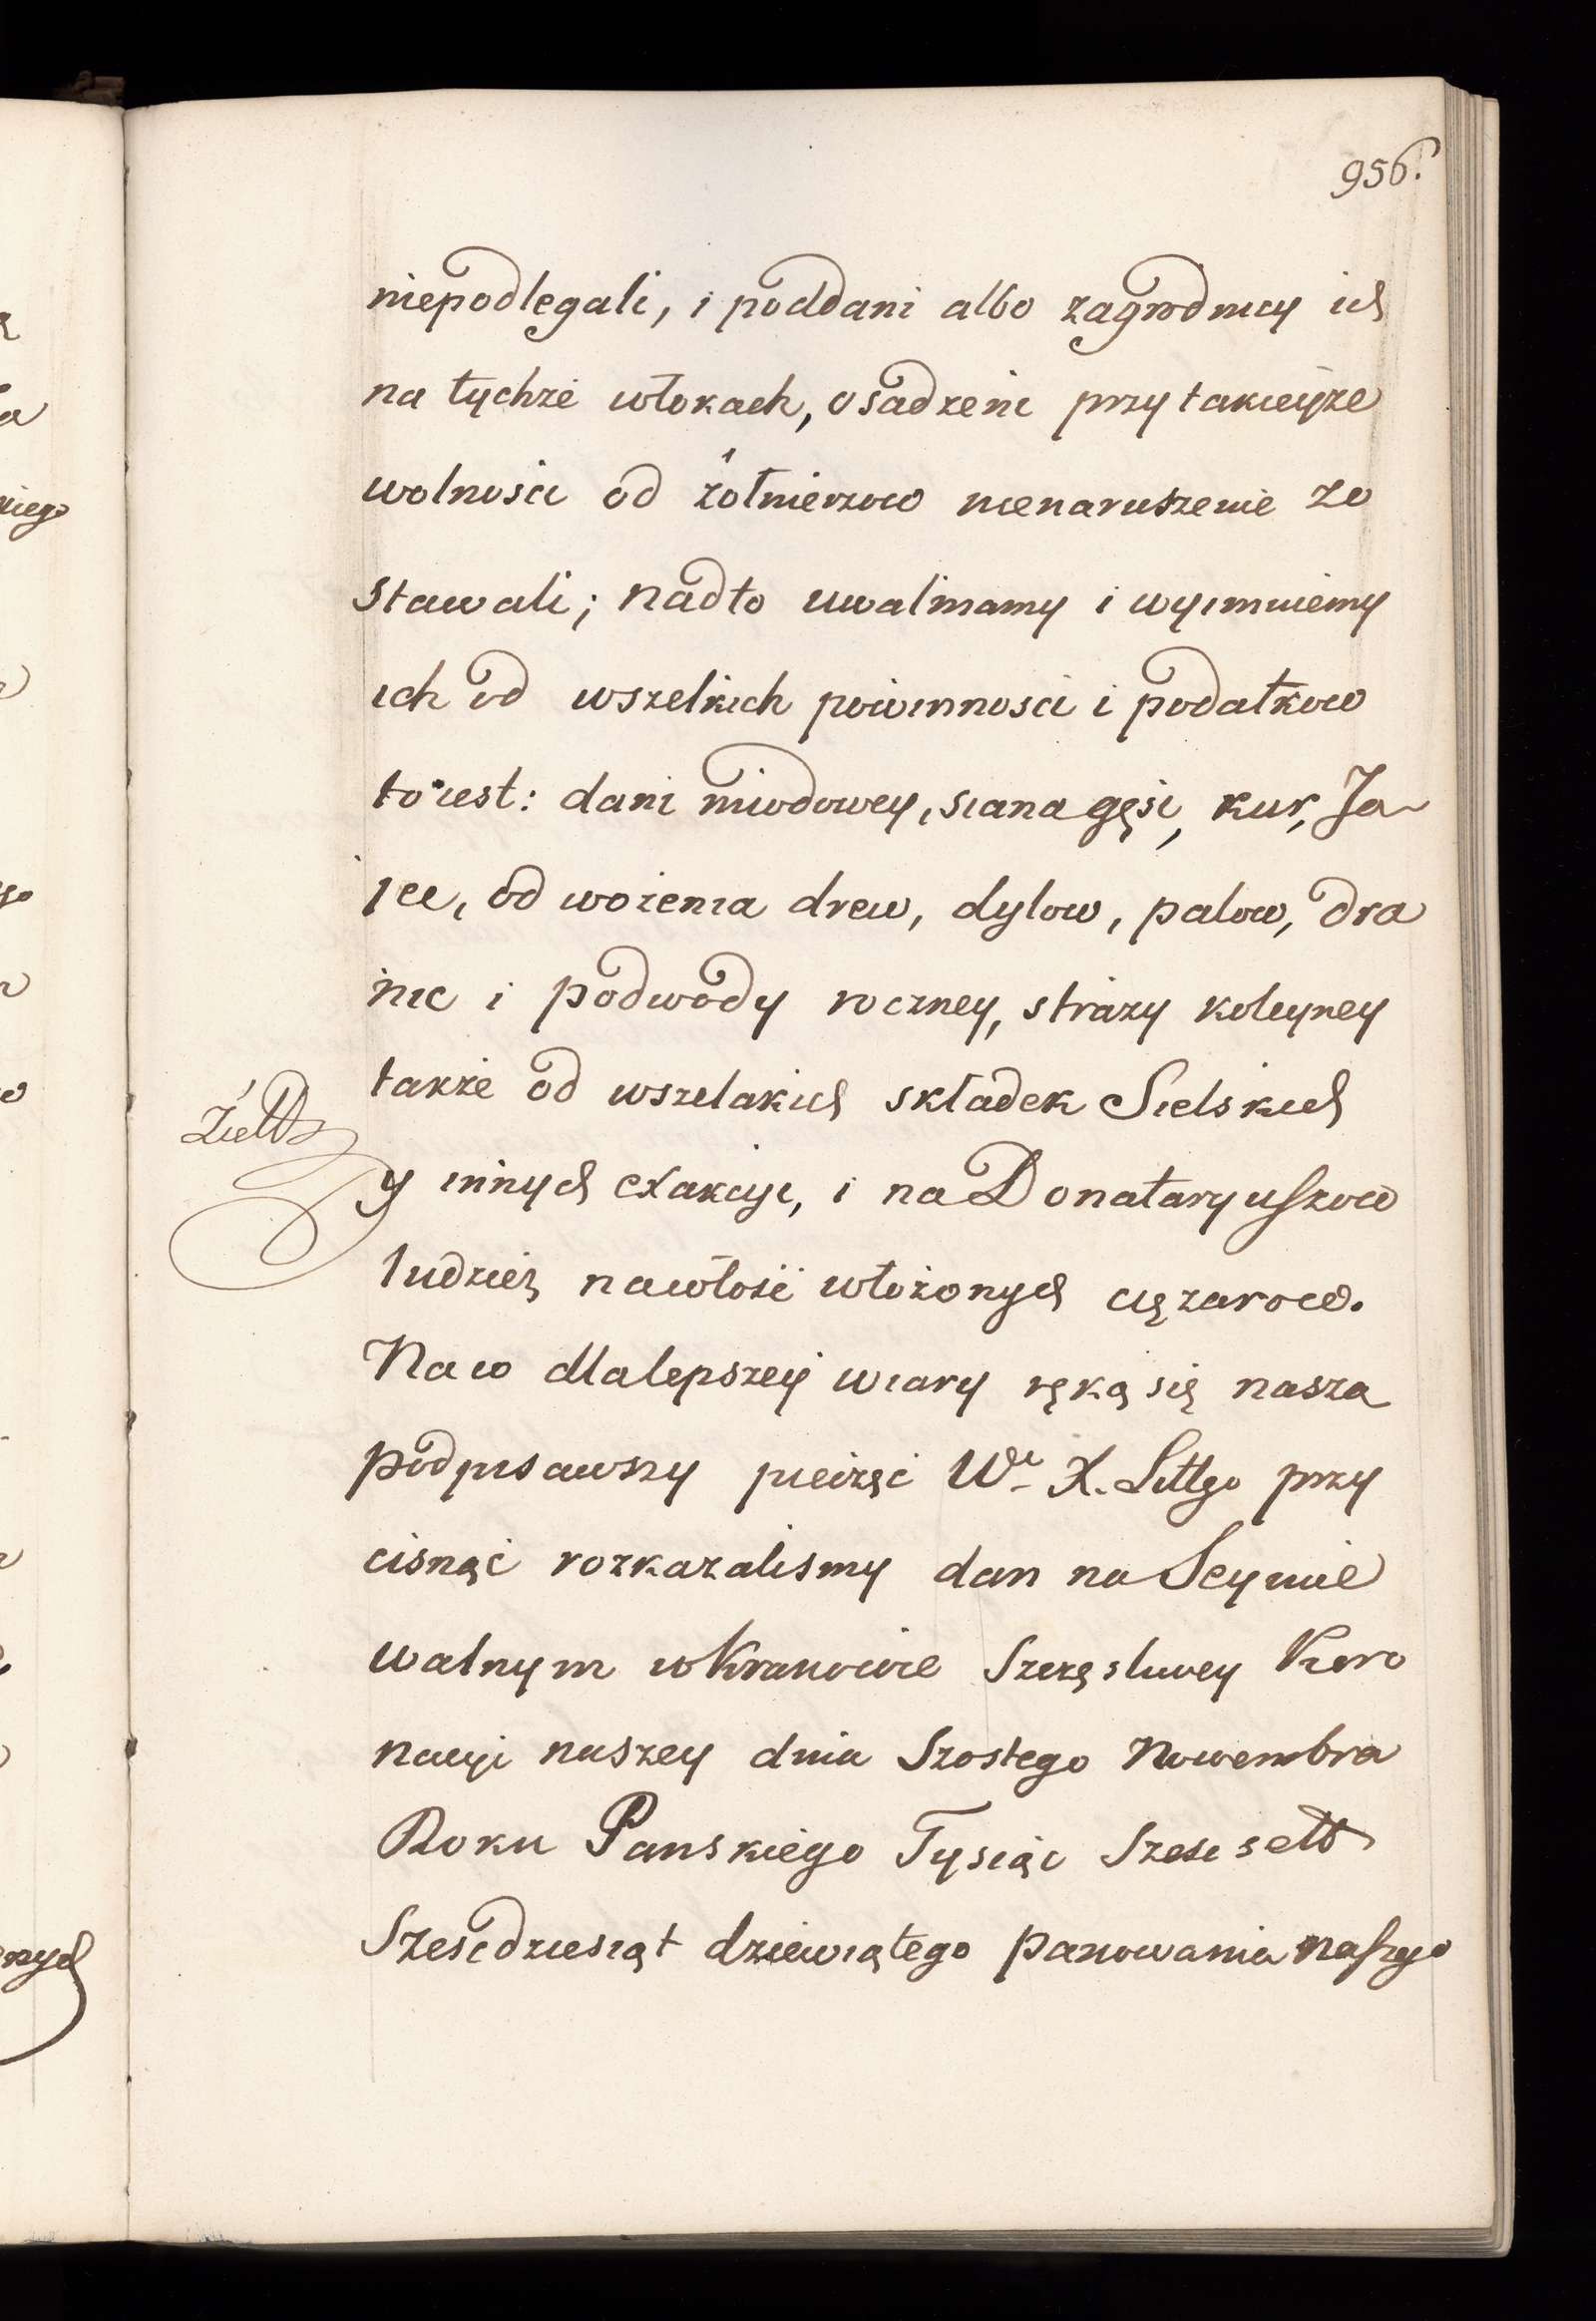 956.
niepodlegali, i poddani albo zagrodnicy ich
na tychże włokach, osadzeni przy takieyże
wolności od żołnierzow nienaruszenie zo
stawali; nadto uwalniamy i wyimuiemy
ich od wszelkich powinnosci i podatkow
to iest: dani miodowey, siana gęsi, kur, Ja
iec, od wożenia drew, dylow, palow, dra
nic i podwody roczney, straży koleyney
także od wszelakich składek Sielskich
y innych exakcyi, i na Donataryuszow
ludzież nawłość włożonych ciężarow.
Na co dla lepszey wiary ręką się naszą
podpisawszy pieczęć Wo X. Littgo przy
cisnąć rozkazalismy dan na Seymie
walnym w Krakowie Szczęsliwey Koro
nacyi naszey dnia Szostego Nowembra
Roku Panskiego Tysiąc Szesc sett
Szescdziesiąt dziewiątego panowania naszego